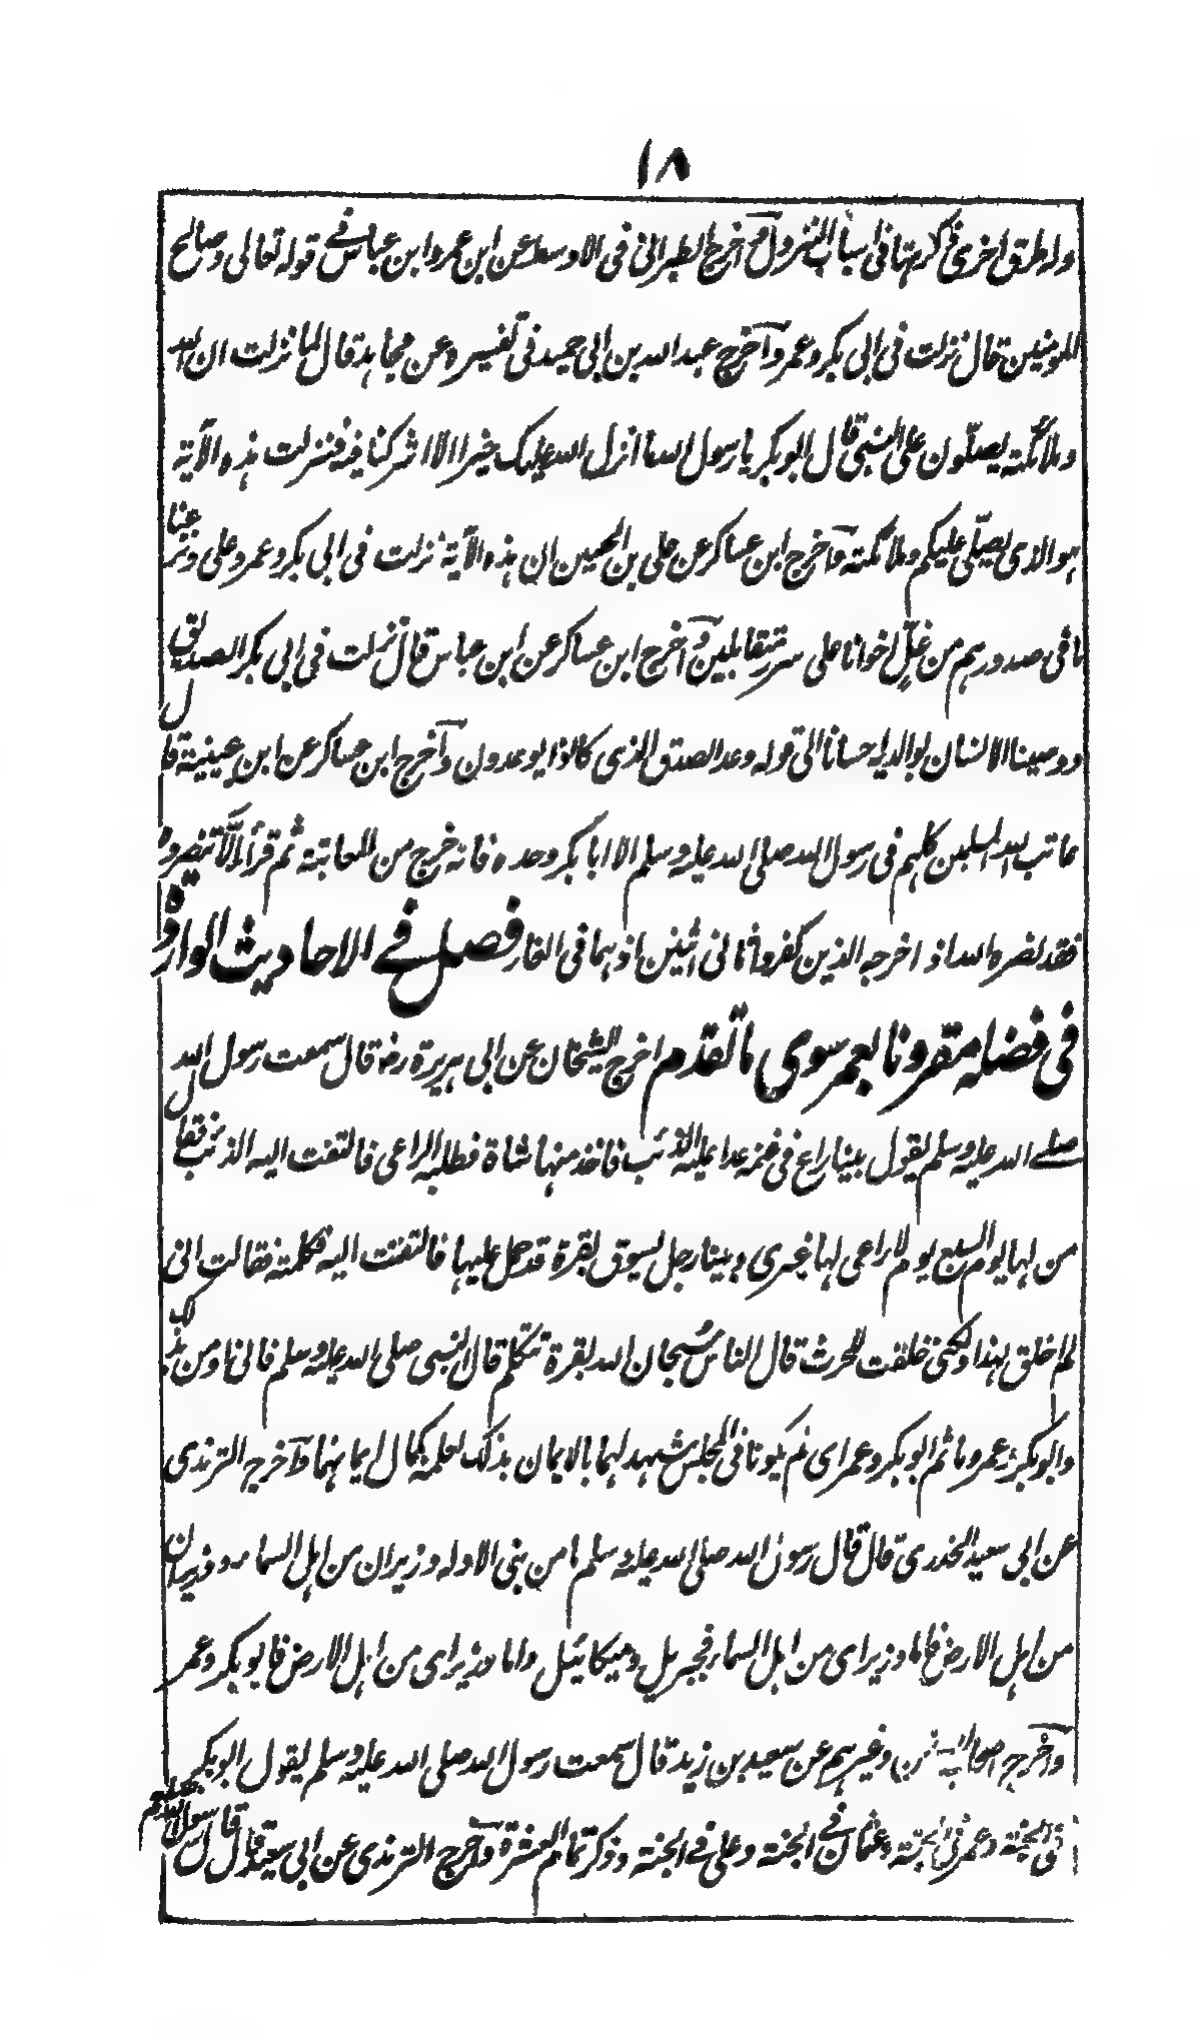 ١٨
وله طرق اخرى ذكرتها فى اسباب النزول واخرج الطبرانى فى الاوسط عن ابن عمر وابن عباس فى قوله تعالى وصالح
المومنين قال نزلت فى ابى بكر وعمر واخرج عبد الله بن ابى حميد فى تفسيره عن مجاهد قال لما نزلت ان الله
وملائكته يصلّون على النبى قال ابو بكر يا رسول الله ما انزل الله عليك خيرا الا اشركنا فيه فنزلت هذه الآية
هو الذى يصلّى عليكم وملائكته واخرج ابن عساكر عن على بن الحسين ان هذه الآية نزلت فى ابى بكر وعمر وعلى ونزعنا
ما فى صدورهم من غلٍّ اخوانا على سرر متقابلين واخرج ابن عساكر عن ابن عباس قال نزلت فى ابى بكر الصديق
ووصينا الانسان بوالديه احسانا الى قوله وعد الصدق الذى كانوا يوعدون واخرج ابن عساكر عن ابن عيينة قال
عاتب الله المسلمين كلهم فى رسول الله صلى الله عليه وسلم الا ابا بكر وحده فانه خرج من المعاتبة ثم قرأ الّا تنصروه
فقد نصره الله اذ اخرجه الذين كفروا ثانى اثنين اذ هما فى الغار فصل فى الاحاديث الواردة
فى فضله مقرونا بعمر سوى ما تقدم اخرج الشيخان عن ابى هريرة رض قال سمعت رسول الله
صلى الله عليه وسلم يقول بينا راع فى غنمه عدا عليه الذئب فاخذ منها شاة فطلبه الراعى فالتفت اليه الذئب فقال
من لها يوم السبع يوم لا راعى لها غيرى وبينا رجل يسوق بقرة قد حمل عليها فالتفتت اليه فكلمته فقالت انى
لم اخلق لهذا ولكنى خلقت للحرث قال الناس سُبحان الله بقرة تتكلم قال النبى صلى الله عليه وسلم فانى اومن بذلك
وابو بكر وعمر وما ثم ابو بكر وعمر اى لم يكونا فى المجلس شهد لهما بالايمان بذلك لعلمه بكمال ايمانهما واخرج الترمذى
عن ابى سعيد الخدرى قال قال رسول الله صلى الله عليه وسلم ما من نبى الا وله وزيران من اهل السماء ووزيران
من اهل الارض فاما وزيراى من اهل السماء فجبريل وميكائيل واما وزيراى من اهل الارض فابو بكر وعمر
واخرج اصحاب السنن وغيرهم عن سعيد بن زيد قال سمعت رسول الله صلى الله عليه وسلم يقول ابو بكر
فى الجنة وعمر فى الجنة وعثمان فى الجنة وعلى فى الجنة وذكر تمام العشرة واخرج الترمذى عن ابى سعيد قال قال رسول الله